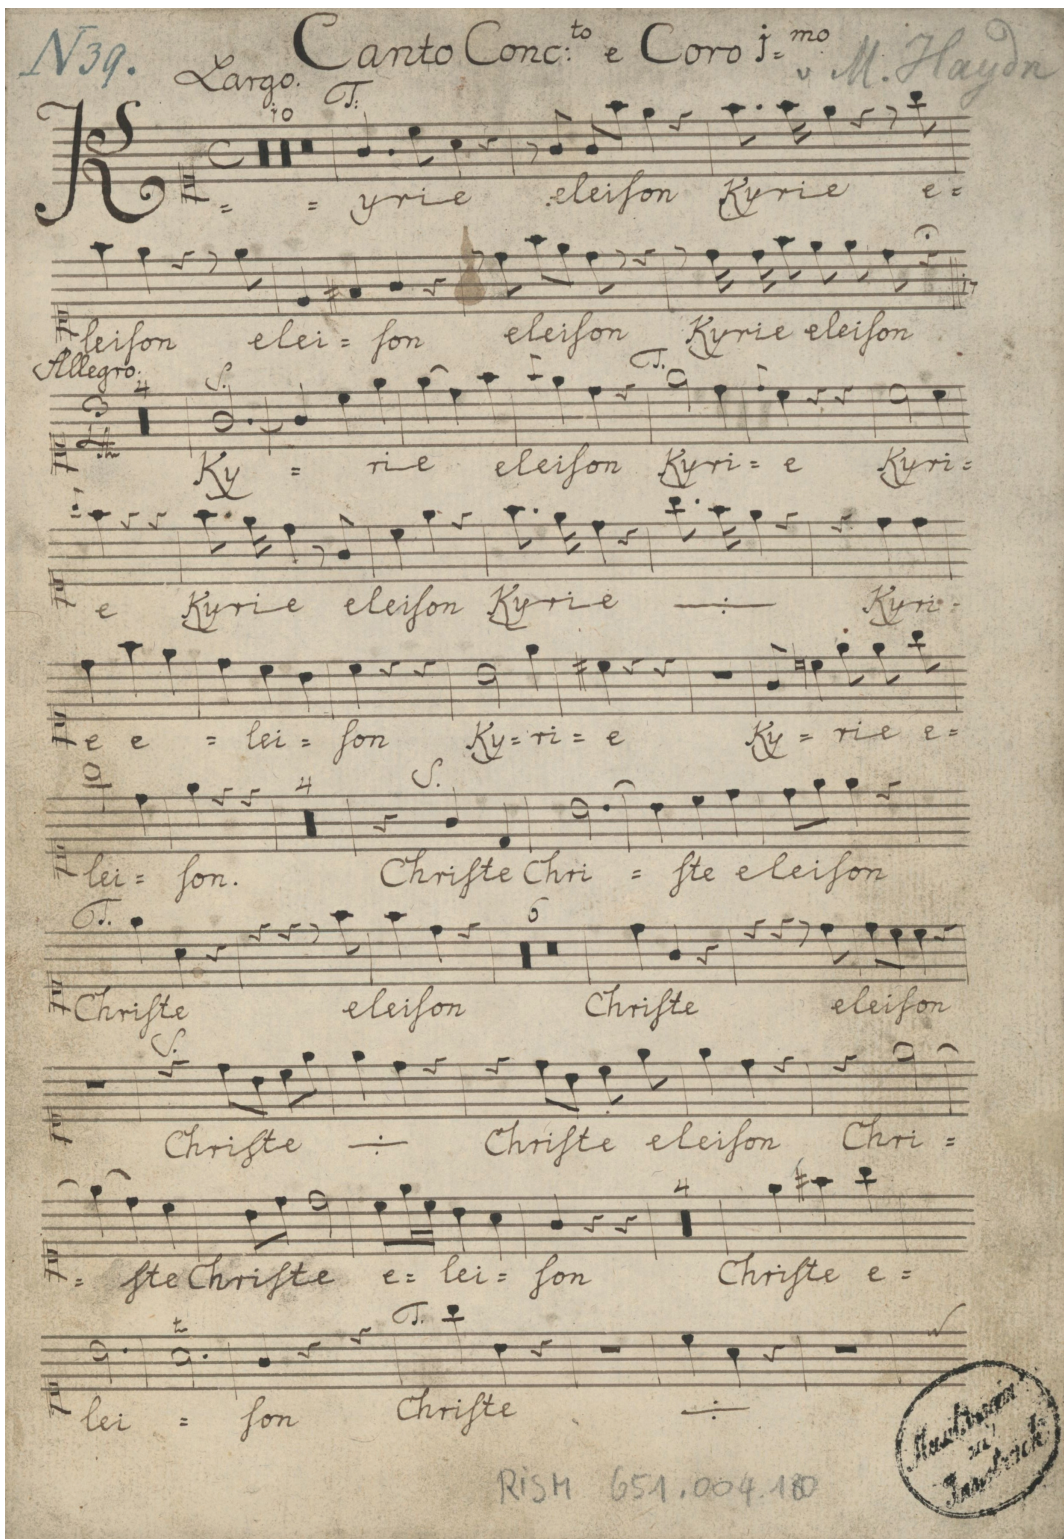 N 39.
Canto Conc:to e Coro j=mo
v M. Haydn
Largo.
10
T:
K = = yrie eleison Kyrie e=
leison elei = son eleison Kyrie eleison
Allegro.
4
S.
T.
Ky = rie eleison Kyri = e Kyri =
e Kyrie eleison Kyrie ÷ Kyri =
e e = lei = son Ky = ri = e Ky = rie e =
4
S.
lei = son. Christe Chri = ste eleison
T.
6
Christe eleison Christe eleison
S.
Christe ÷ Christe eleison Chri =
4
= ste Christe e = lei = son Christe e =
t
T.
lei = son Christe ÷
Musikverein
zu
Innsbruck
RISM 651.004.180